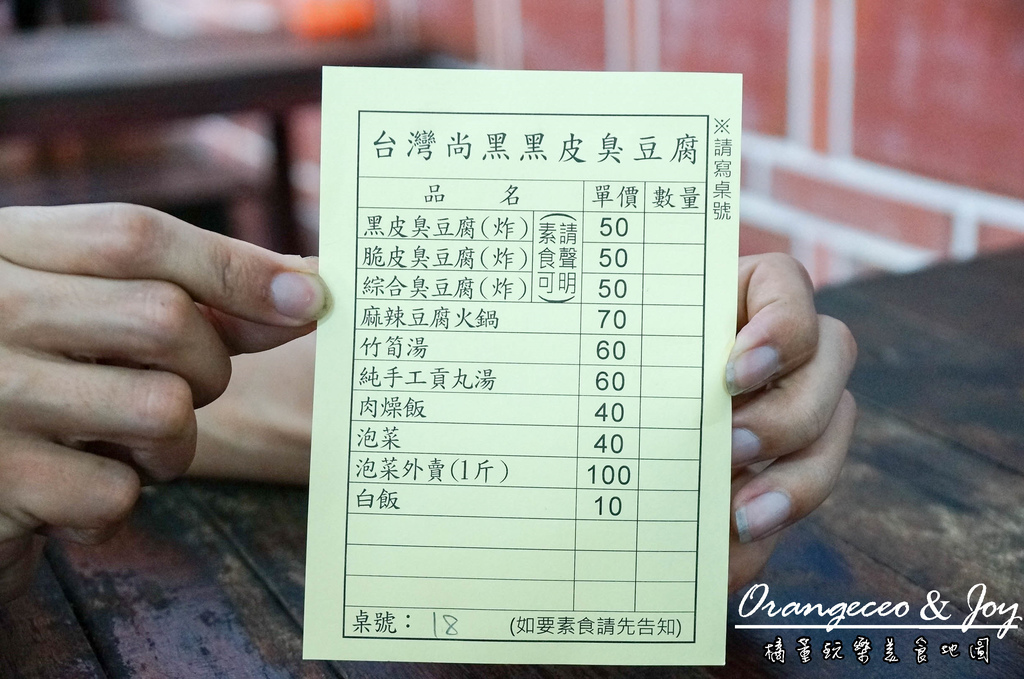 台灣尚黑黑皮臭豆腐
※請寫桌號
品名 單價 數量
黑皮臭豆腐(炸) 50
脆皮臭豆腐(炸) 50
綜合臭豆腐(炸) 50
(請聲明
素食可)
麻辣豆腐火鍋 70
竹筍湯 60
純手工貢丸湯 60
肉燥飯 40
泡菜 40
泡菜外賣(1斤) 100
白飯 10
桌號：18 (如要素食請先告知)
Orangeceo & Joy
橘董玩樂美食地圖